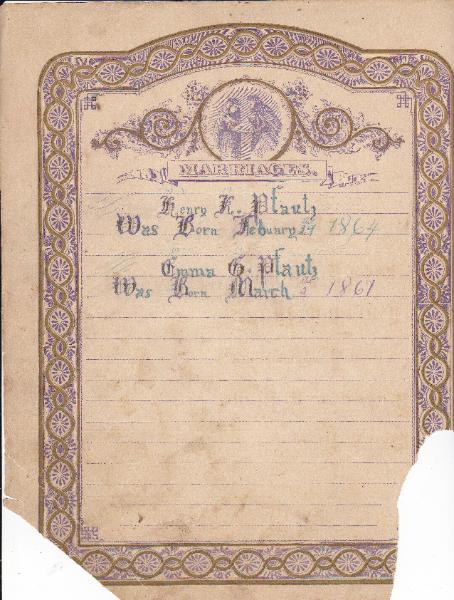 MARRIAGES.
Henry K. Pfautz
Was Born Febuary 1864
Emma G. Pfautz
Was Born March 1867